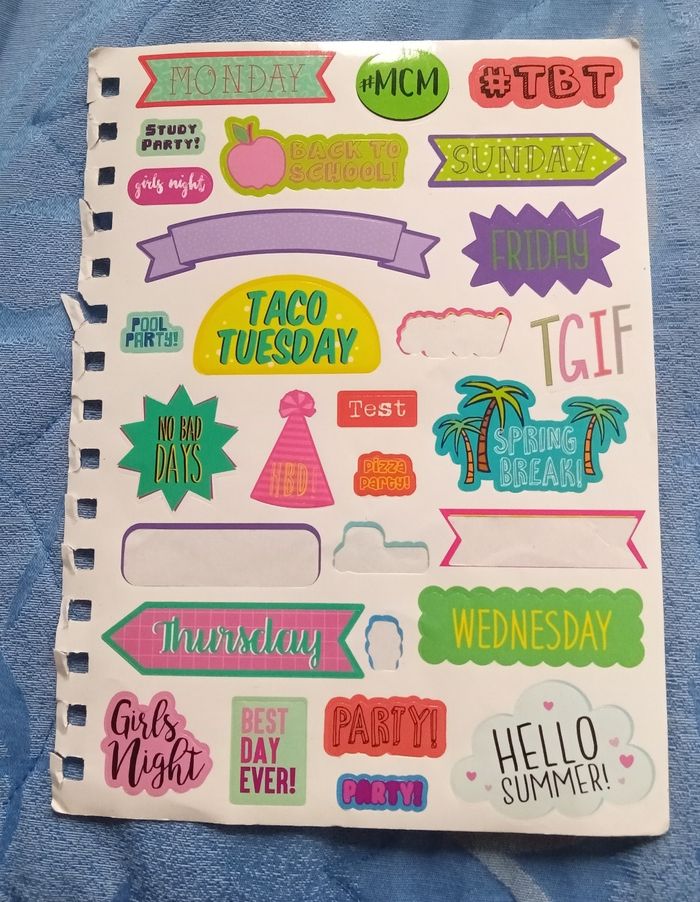 MONDAY
#MCM
#TBT
STUDY
PARTY!
BACK TO
SCHOOL!
SUNDAY
girls night
FRIDAY
TACO
TUESDAY
POOL
PARTY!
TGIF
NO BAD
DAYS
HBD!
Test
PIZZA
PARTY!
SPRING
BREAK!
Thursday
WEDNESDAY
Girls
Night
BEST
DAY
EVER!
PARTY!
PARTY!
HELLO
SUMMER!